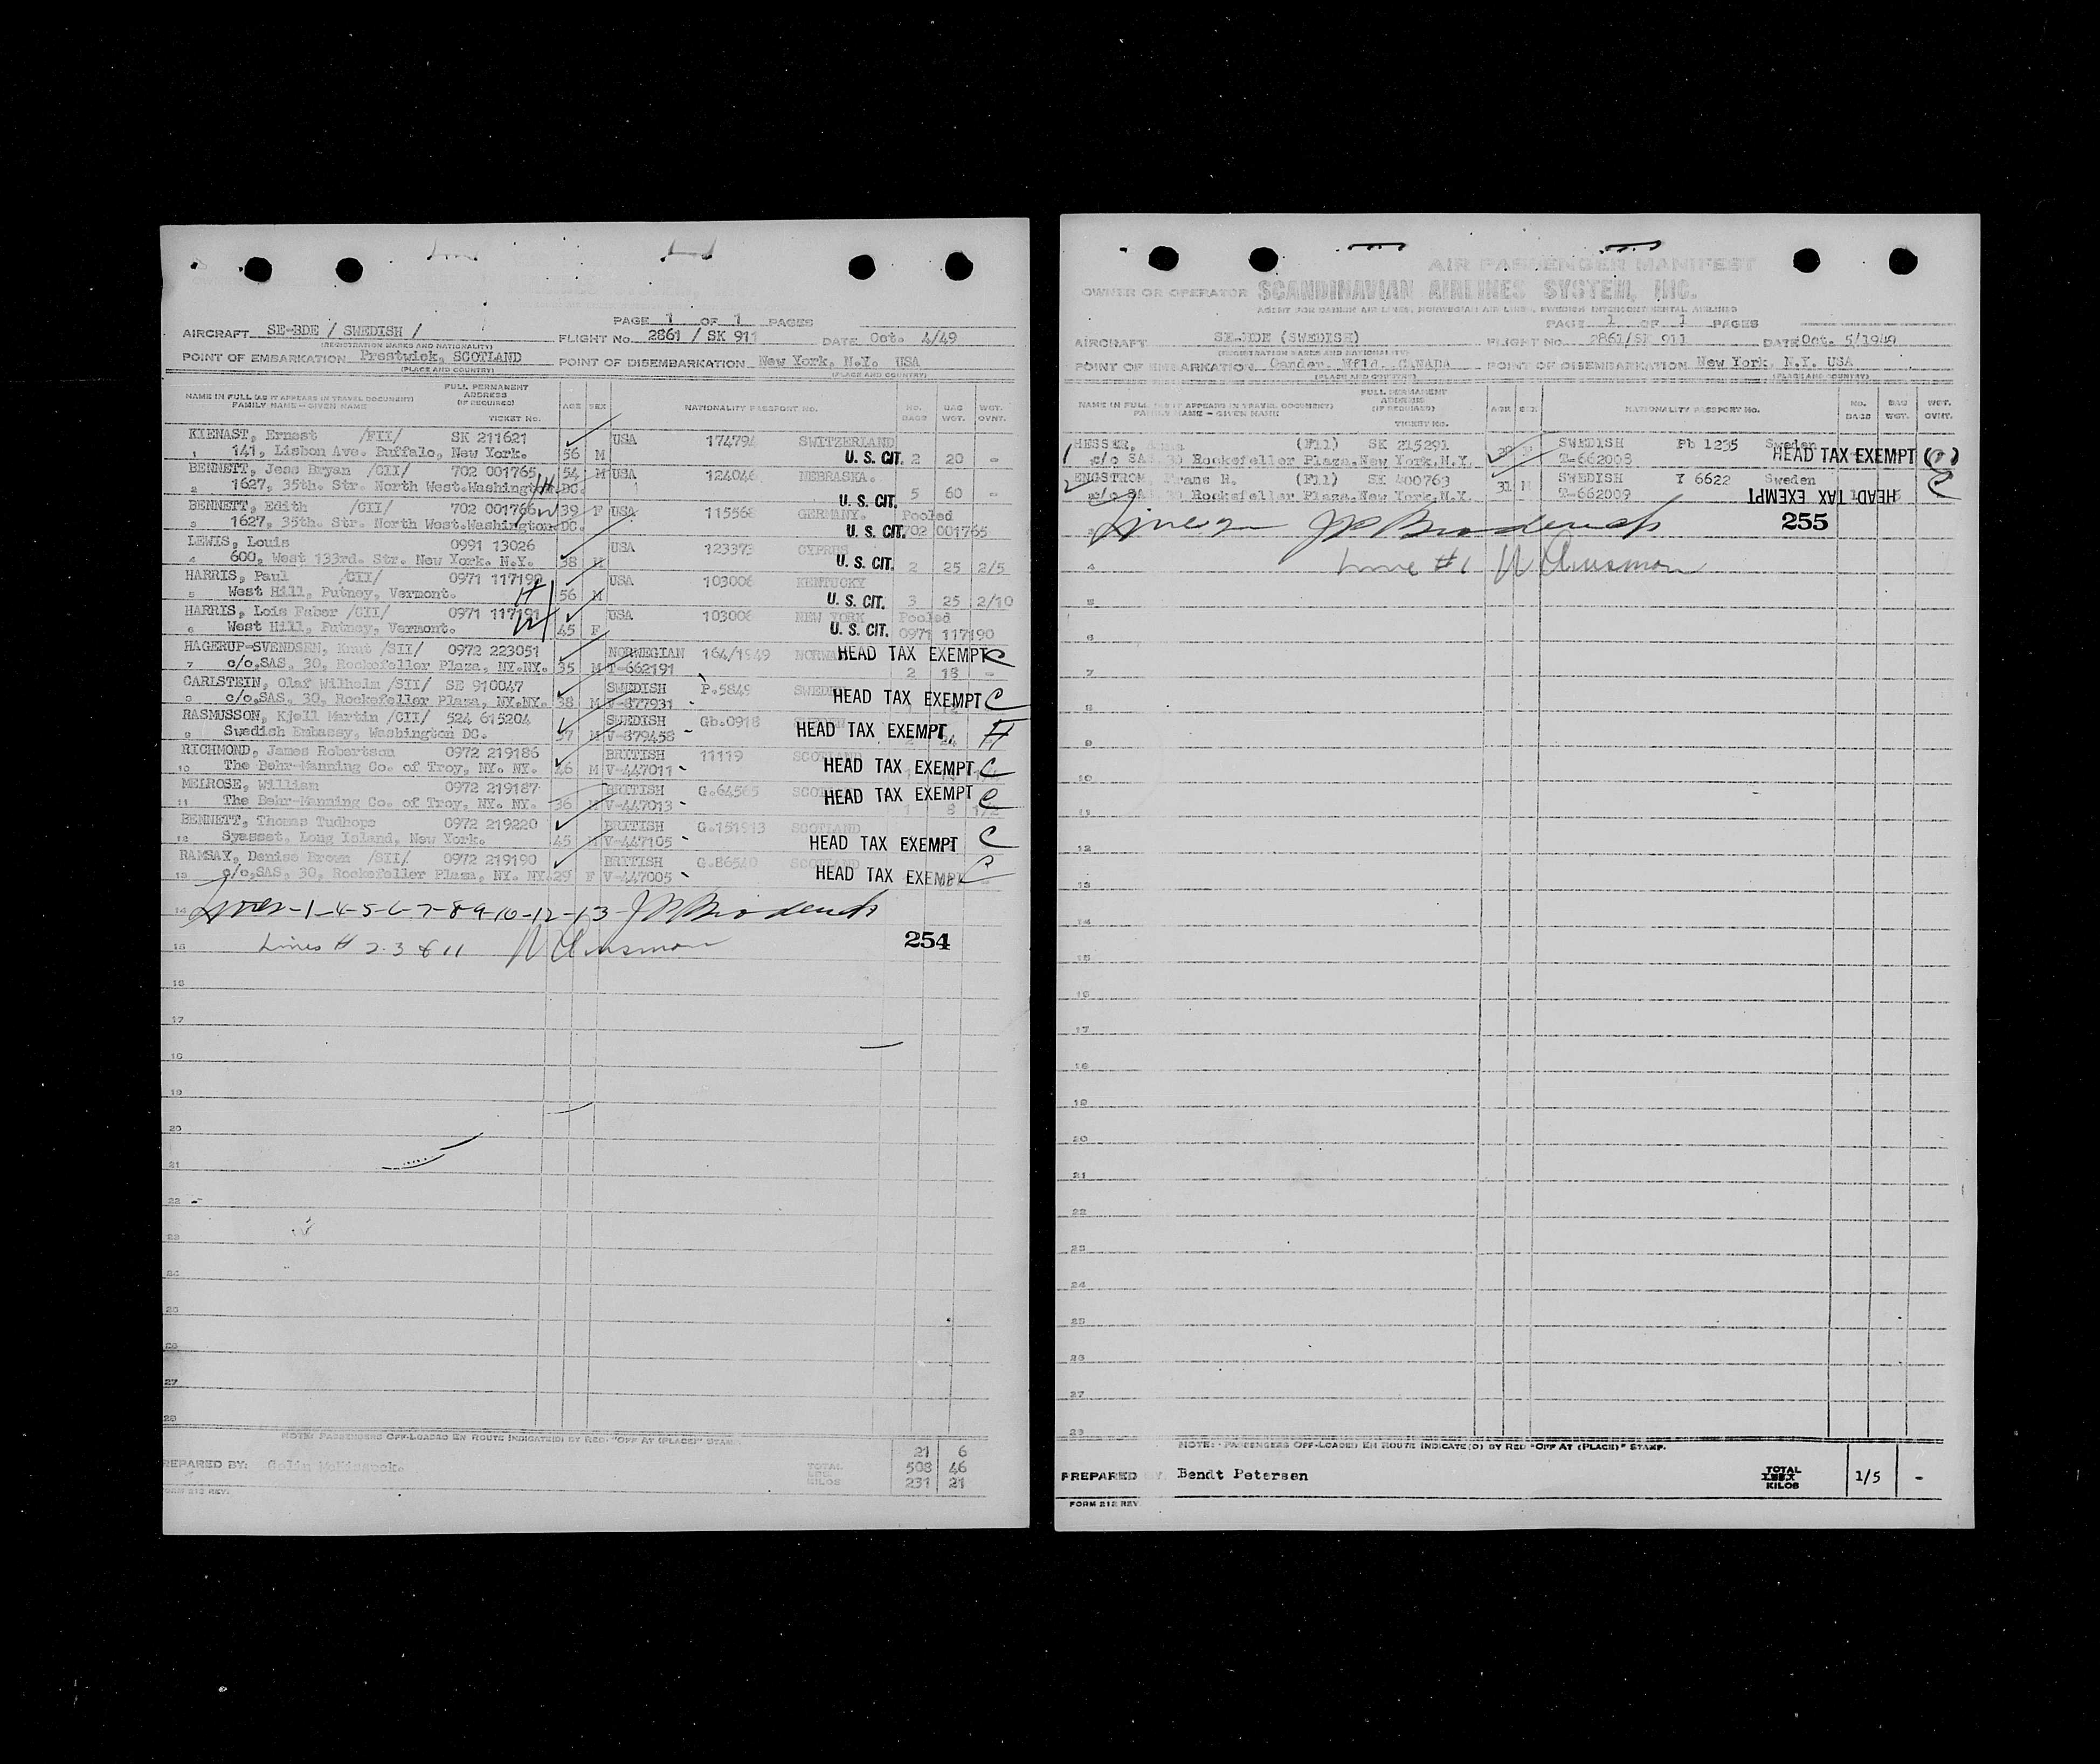 PAGE 1 OF 1 PAGES
AIRCRAFT SE-BDE / SWEDISH / FLIGHT No. 2861 / SK 911 DATE Oct. 4/49
(REGISTRATION MARKS AND NATIONALITY)
POINT OF EMBARKATION Prestwick, SCOTLAND POINT OF DISEMBARKATION New York, N.Y. USA
(PLACE AND COUNTRY) (PLACE AND COUNTRY)
NAME IN FULL (AS IT APPEARS IN TRAVEL DOCUMENT) FAMILY NAME - GIVEN NAME FULL PERMANENT ADDRESS (IF REQUIRED) TICKET No. AGE SEX NATIONALITY PASSPORT NO. NO. BAGS BAG WGT. WGT. OVNT.
KIENAST, Ernest /FII/ SK 211621 USA 17479 SWITZERLAND
1 141, Lisbon Ave. Buffalo, New York. 56 M U. S. CIT. 2 20 -
BENNETT, Jess Bryan /CII/ 702 001765 54 M USA 124046 NEBRASKA.
2 1627, 35th. Str. North West.Washington DC. H U. S. CIT. 5 60 -
BENNETT, Edith /CII/ 702 001766 W 39 F USA 115568 GERMANY. Pooled
3 1627, 35th. Str. North West.Washington DC. U. S. CIT. 702 001765
LEWIS, Louis 0991 13026 USA 123373 CYPRUS
4 600, West 133rd. Str. New York. N.Y. 38 M U. S. CIT. 2 25 2/5
HARRIS, Paul /CII/ 0971 117190 USA 103006 KENTUCKY
5 West Hill, Putney, Vermont. H 56 M U. S. CIT. 3 25 2/10
HARRIS, Lois Faber /CII/ 0971 117191 USA 103006 NEW YORK Pooled
6 West Hill, Putney, Vermont. W 45 F U. S. CIT. 0971 117190
HAGERUP-SVENDSEN, Knut /SII/ 0972 223051 NORWEGIAN 164/1949 HEAD TAX EXEMPT C
7 c/o,SAS, 30, Rockefeller Plaza, NY.NY. 35 M T-662191 2 18 -
CARLSTEIN, Olaf Wilhelm /SII/ SE 910047 SWEDISH P.5849 HEAD TAX EXEMPT C
8 c/o,SAS, 30, Rockefeller Plaza, NY.NY. 38 M V-877931
RASMUSSON, Kjell Martin /CII/ 524 615204 SWEDISH Gb.0918 HEAD TAX EXEMPT H
9 Swedish Embassy, Washington DC. 37 M V-879458
RICHMOND, James Robertson 0972 219186 BRITISH 11119 SCOTLAND
10 The Behr-Manning Co. of Troy, NY. NY. 46 M V-447011 HEAD TAX EXEMPT C
MELROSE, William 0972 219187 BRITISH G.64565 HEAD TAX EXEMPT C
11 The Behr-Manning Co. of Troy, NY. NY. 36 M V-447013 1 8 1/2
BENNETT, Thomas Tudhope 0972 219220 BRITISH G.151913 SCOTLAND
12 Syasset, Long Island, New York. 45 M V-447105 HEAD TAX EXEMPT C
RAMSAY, Denise Brown /SII/ 0972 219190 BRITISH G.86540 SCOTLAND
13 c/o,SAS, 30, Rockefeller Plaza, NY. NY. 29 F V-447005 HEAD TAX EXEMPT C
14 Lines-1-4-5-6-7-8-9-10-12-13- J P Broderick
15 Lines # 2.3 & 11 254
16
17
18
19
20
21
22
23
24
25
26
27
28
NOTE: PASSENGERS OFF-LOADED EN ROUTE INDICATE(D) BY RED "OFF AT (PLACE)" STAMP.
21 6
PREPARED BY: TOTAL LBS. 508 46
KILOS 231 21
FORM 212 REV.
AIR PASSENGER MANIFEST
OWNER OR OPERATOR SCANDINAVIAN AIRLINES SYSTEM, INC.
AGENT FOR DANISH AIR LINES, NORWEGIAN AIR LINES, SWEDISH INTERCONTINENTAL AIRLINES
PAGE 1 OF 1 PAGES
AIRCRAFT SE-BDE (SWEDISH) FLIGHT NO. 2861/SK 911 DATE Oct. 5/1949
(REGISTRATION MARKS AND NATIONALITY)
POINT OF EMBARKATION Gander, Nfld. CANADA POINT OF DISEMBARKATION New York, N.Y. USA
(PLACE AND COUNTRY) (PLACE AND COUNTRY)
NAME IN FULL (AS IT APPEARS IN TRAVEL DOCUMENT) FAMILY NAME - GIVEN NAME FULL PERMANENT ADDRESS (IF REQUIRED) TICKET NO. AGE SEX NATIONALITY PASSPORT NO. NO. BAGS BAG WGT. WGT. OVNT.
HESSER, (F11) SK 215291 SWEDISH Pb 1235 Sweden
1 c/o SAS 30 Rockefeller Plaza.New York.N.Y. T-662008 HEAD TAX EXEMPT
ENGSTROM, Frans H. (F11) SK 400763 31 M SWEDISH Y 6622 Sweden
2 c/o SAS 30 Rockefeller Plaza.New York.N.Y. T-662009 HEAD TAX EXEMPT C
3 J P Broderick 255
4 Line #1
5
6
7
8
9
10
11
12
13
14
15
16
17
18
19
20
21
22
23
24
25
26
27
28
NOTE: PASSENGERS OFF-LOADED EN ROUTE INDICATE(D) BY RED "OFF AT (PLACE)" STAMP.
PREPARED BY Bendt Petersen TOTAL LBS. KILOS 1/5 -
FORM 212 REV